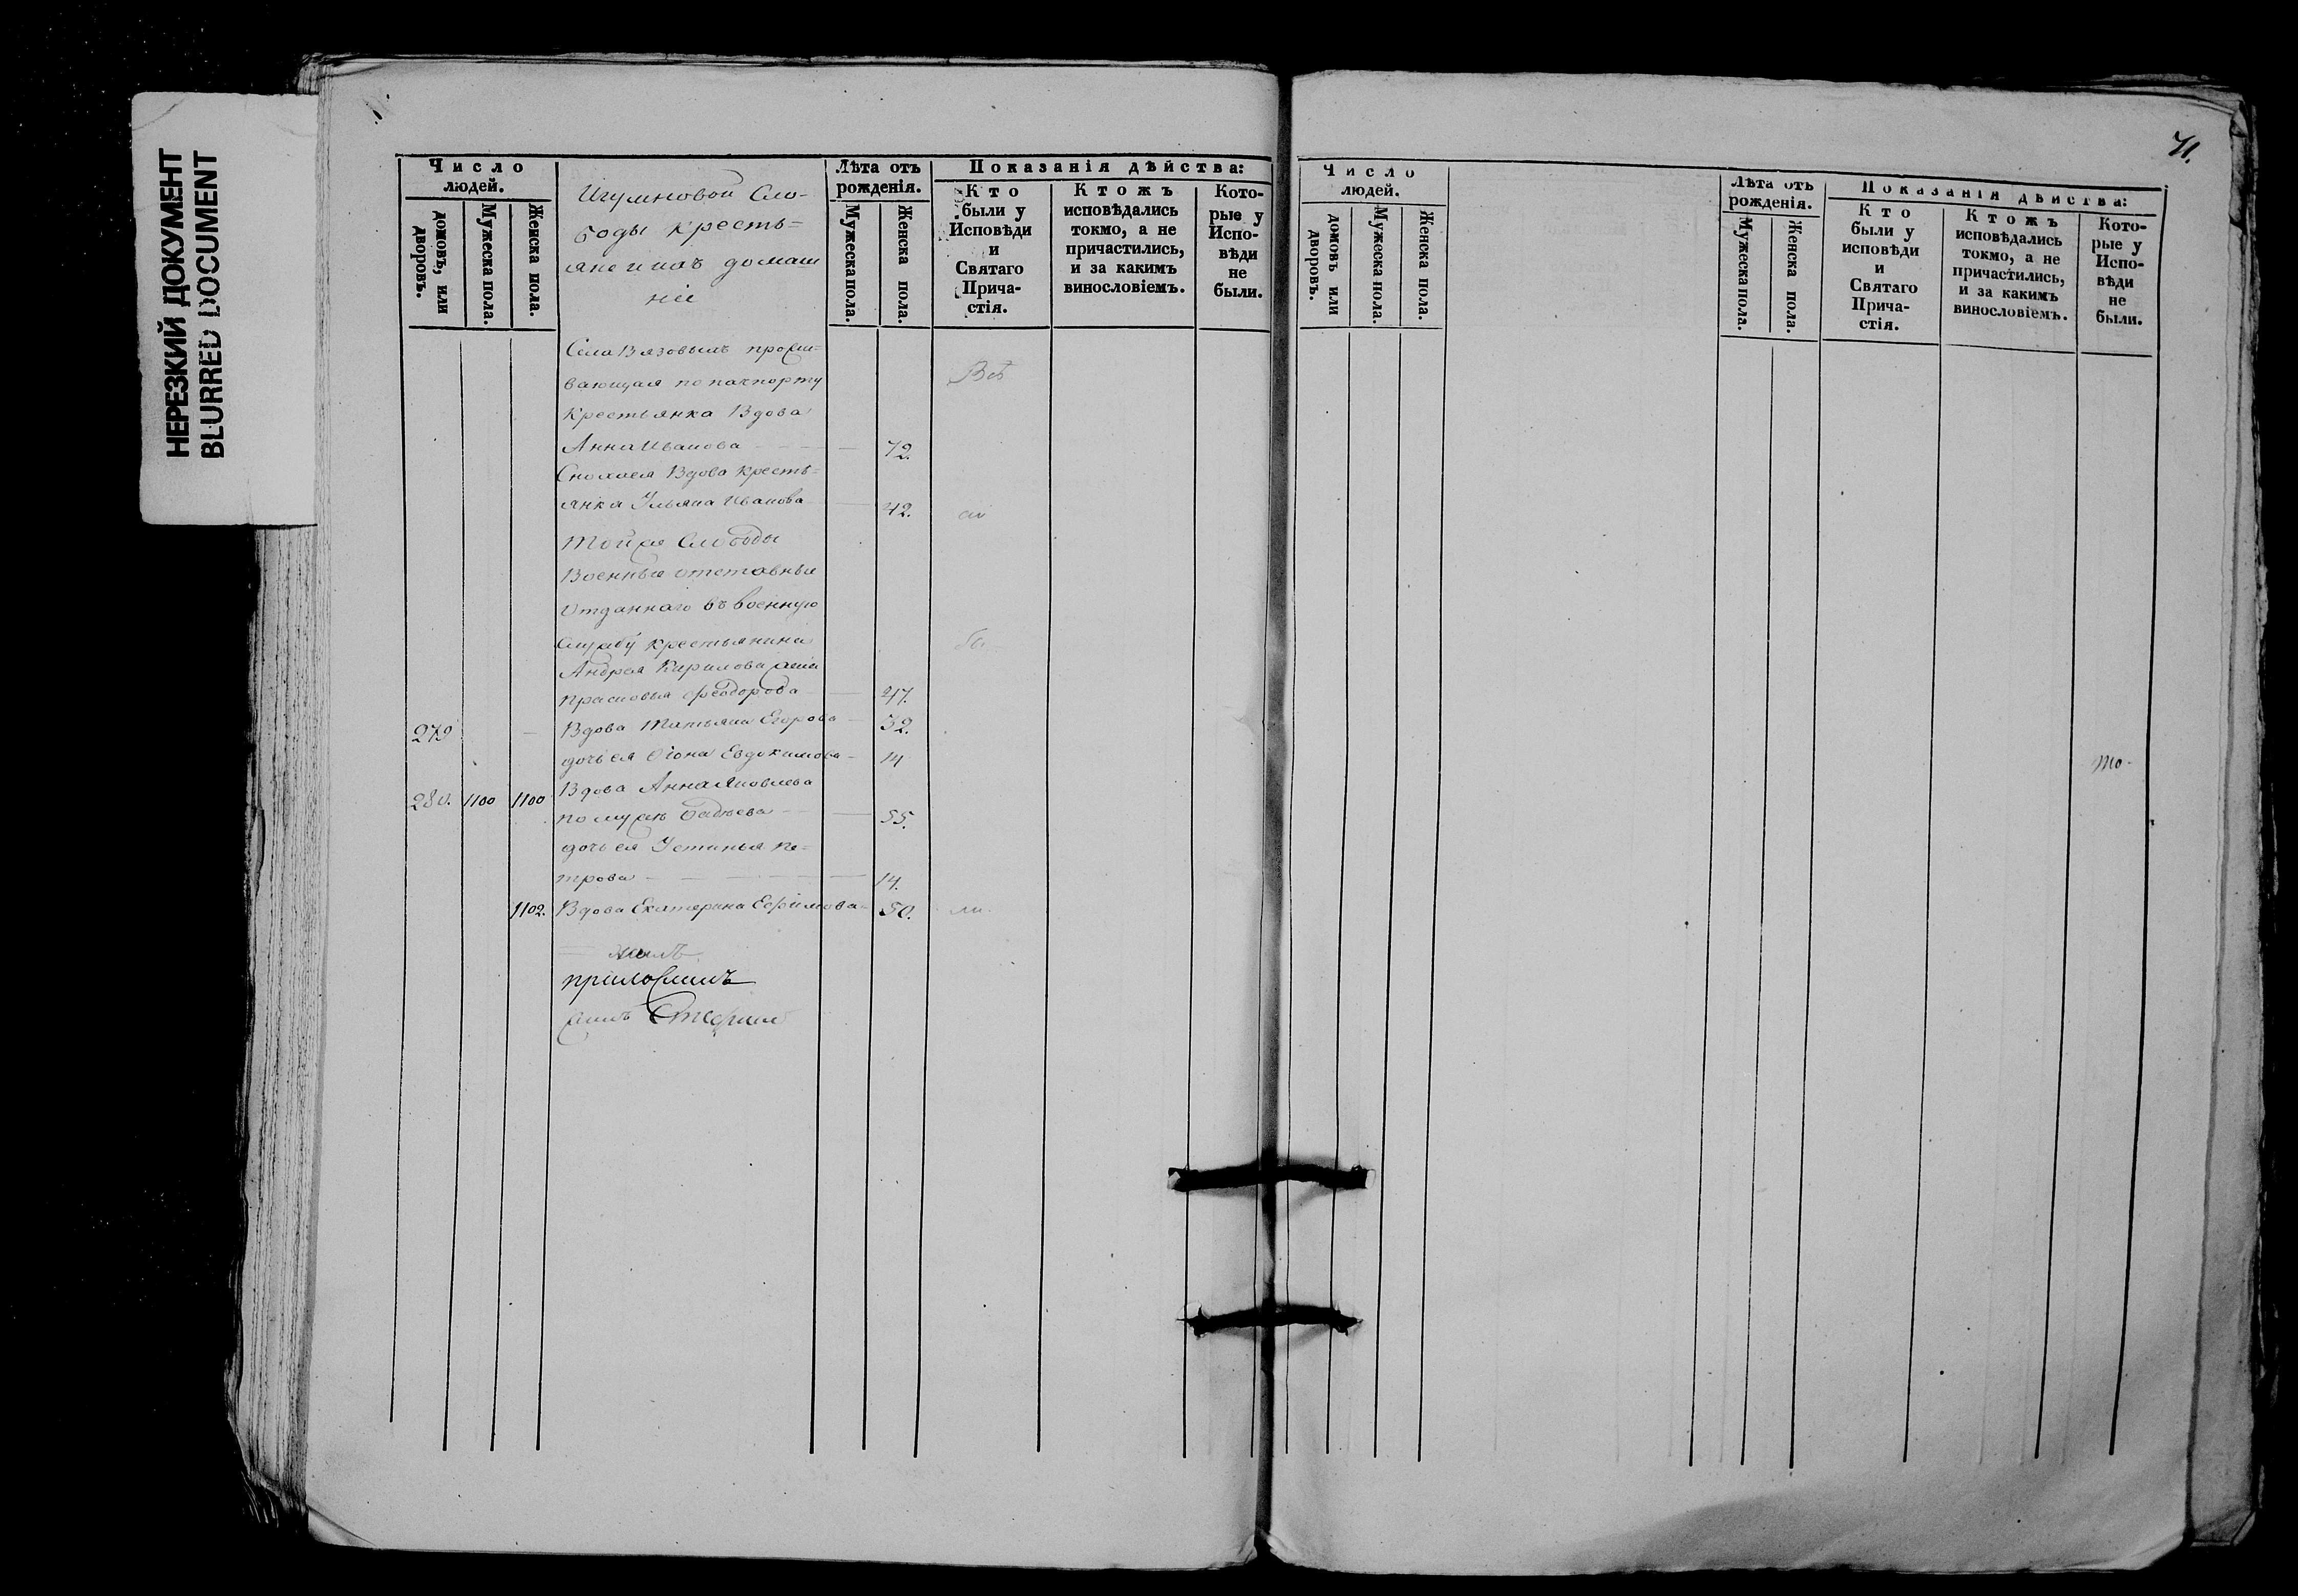 НЕРЕЗКИЙ ДОКУМЕНТ
BLURRED DOCUMENT
Число людей.
домовъ, или дворовъ.
Мужеска пола.
Женска пола.
Игумновой Сло-
боды кресть=
яне и ихъ домаш
ніе
Лѣта отъ рожденія.
Мужеска пола.
Женска пола.
Показанія дѣйства:
Кто были у Исповѣди и Святаго Прича-стія.
Ктожъ исповѣдались токмо, а не причастились, и за какимъ винословіемъ.
Кото-рые у Испо-вѣди не были.
Села Вязовыхъ прожи=
вающая по пашпорту
Всѣ
крестьянка Вдова
Анна Иванова 72.
Сноха ея Вдова кресть=
янка Ульяна Иванова 42.
Той же Слободы
Военные отставные
Отданнаго въ военную
службу крестьянина
Андрея Кирилова жена
Прасковья Феодорова 47.
279 Вдова Татьяна Егорова 52.
дочь ея Евдокимова 14
280. 1100 1100 Вдова Анна Яковлева
по мужѣ 55.
дочь ея Устинья Пе=
трова 14.
1102. Вдова Екатерина Ефимова 50.
приложилъ
71.
Число людей.
домовъ или дворовъ.
Мужеска пола.
Женска пола.
Лѣта отъ рожденія.
Мужеска пола.
Женска пола.
Показанія дѣйства:
Кто были у исповѣди и Святаго Прича-стія.
Ктожъ исповѣдались токмо, а не причастились, и за какимъ винословіемъ.
Кото-рые у Испо-вѣди не были.
то-